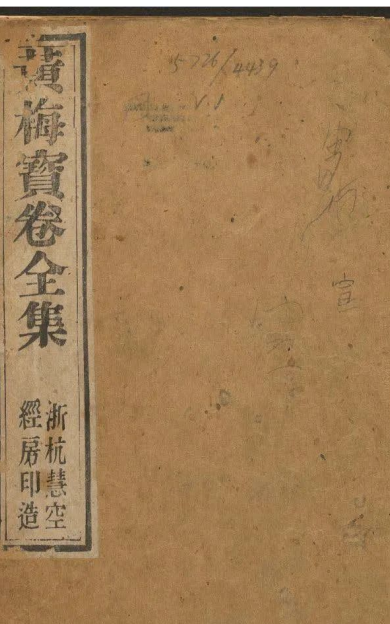 黃梅寶卷全集
浙杭慧空
經房印造
5726/4439
V.1
宣